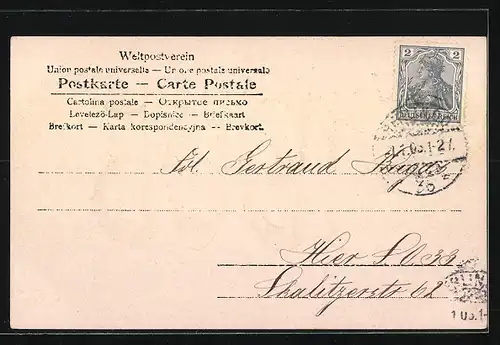 Weltpostverein
Union postale universelle — Unione postale universale
Postkarte — Carte Postale
Cartolina postale — Открытое письмо
Levelező-Lap — Dopisnice — Briefkaart
Brefkort — Karta korespondencyjna — Brevkort.
2 2
DEUTSCHES REICH
Frl. Gertraud
Hier S O 33
Skalitzerstr 62